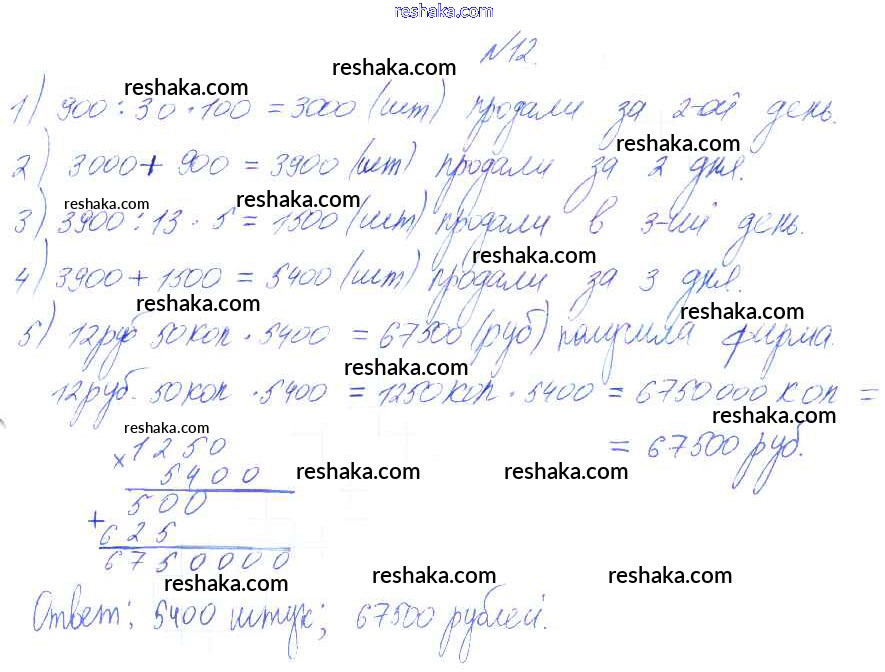 reshaka.com
№12.
reshaka.com
reshaka.com
1) 900 : 30 · 100 = 3000 (шт) продали за 2-ой день.
reshaka.com
2) 3000 + 900 = 3900 (шт) продали за 2 дня.
reshaka.com reshaka.com
3) 3900 : 13 · 5 = 1500 (шт) продали в 3-ий день.
reshaka.com
4) 3900 + 1500 = 5400 (шт) продали за 3 дня.
reshaka.com reshaka.com
5) 12 руб 50 коп · 5400 = 67500 (руб) получила фирма.
reshaka.com
12 руб. 50 коп · 5400 = 1250 коп · 5400 = 6750000 коп =
reshaka.com
reshaka.com
= 67500 руб.
× 1250
5400
reshaka.com reshaka.com
500
+ 625
6750000
reshaka.com reshaka.com reshaka.com
Ответ: 5400 штук; 67500 рублей.